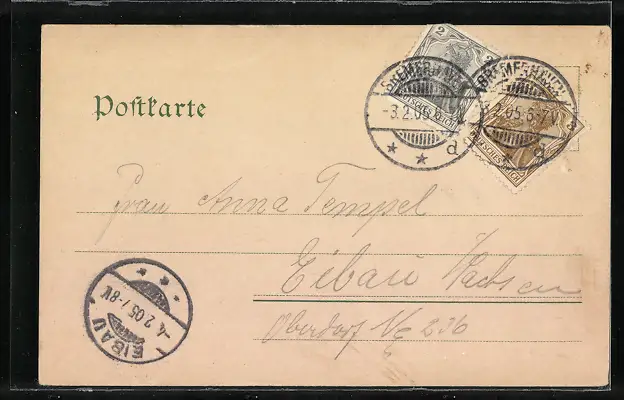 2
BREMERHAVEN
-3.2.05
d
BREMERHAVEN
.2.05.6-7V.
d
DEUTSCHES REICH
3
DEUTSCHES REICH
Postkarte
Frau Anna Tempel
Eibau Sachsen
Oberdorf No 236
EIBAU
-4.2.05.7-8V.